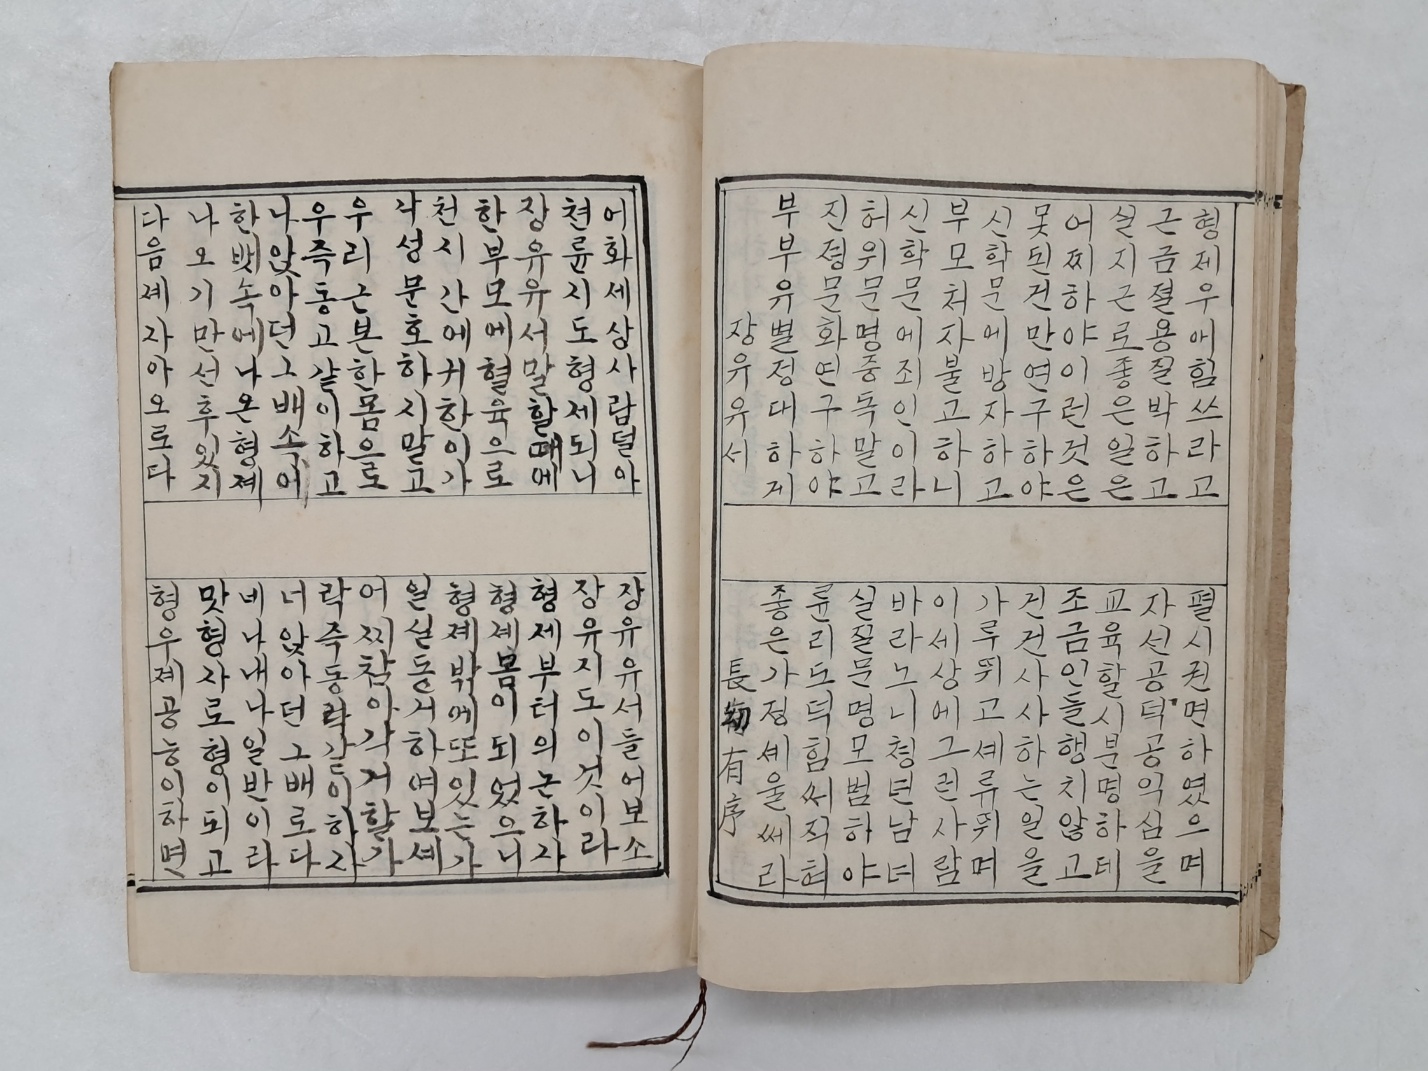 형제우애힘쓰라고
필시권면하였으며
근금졀용질박하고
자선공덕공익심을
실지근로좋은일은
교육할시분명하테
어찌하야이런것은
조금인들행치않고
못된건만연구하야
건건사사하는일을
신학문에방자하고
가루뛰고셰류뛰며
부모처자불고하니
이세상에그런사람
신학문에죄인이라
바라노니청년남녀
허위문명중독말고
실질문명모범하야
진정문화연구하야
륜리도덕힘써직혀
부부유별정대하게
좋은가정셰울쎄라
장유유서
長幼有序
어화세상사람덜아
장유유서들어보소
천륜지도형제되니
장유지도이것이라
장유유서말할때에
형제부터의논하자
한부모에혈육으로
형졔몸이되었으니
천지간에귀한이가
형졔밖에또있는가
각성문호하지말고
일실동거하여보셰
우리근본한몸으로
어찌참아각거할가
우즉동고같이하고
락즉동락같이하자
나앉아던그배속에
너앉아던그배로다
한뱃속에나온형졔
네나내나일반이라
나오기만선후있지
맛형자로형이되고
다음졔자아오로다
형우졔공능이하면